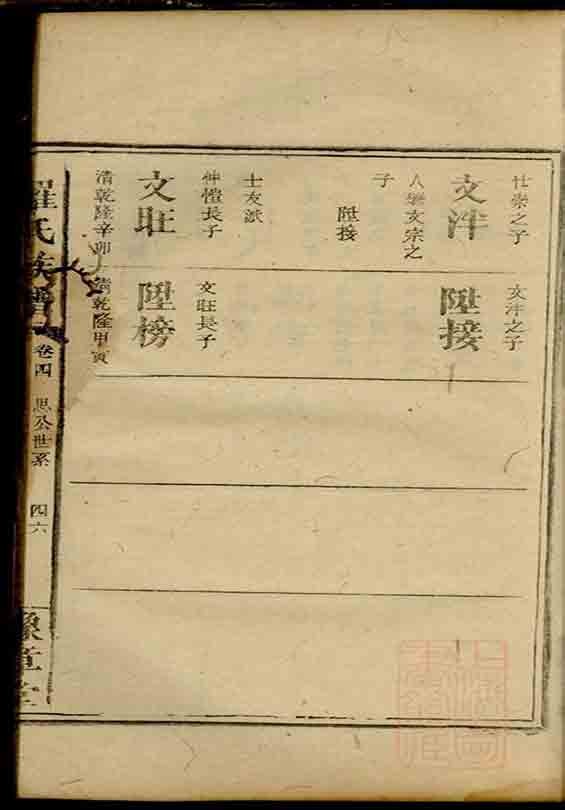 仕崇之子
文泮
入繼文宗之
子
陞接
士友派
仲愷長子
文旺
清乾隆辛卯
文泮之子
陞接
文旺長子
陞榜
清乾隆甲寅
羅氏族譜
卷四
思公世系
四六
豫章堂